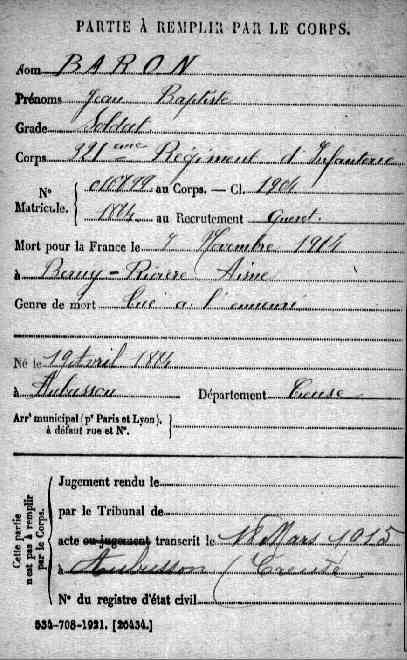 PARTIE À REMPLIR PAR LE CORPS.
Nom BARON
Prénoms Jean Baptiste
Grade Soldat
Corps 321eme Régiment d'Infanterie
N° Matricule. { 016799 au Corps. — Cl. 1904
1884 au Recrutement Guéret.
Mort pour la France le 7 Novembre 1914
à Berny-Rivière Aisne
Genre de mort Tué à l'ennemi
Né le 19 Avril 1884
à Aubusson Département Creuse
Arrt municipal (pr Paris et Lyon), à défaut rue et N°. }
Cette partie n'est pas à remplir par le Corps.
Jugement rendu le
par le Tribunal de
acte ou jugement transcrit le 18 Mars 1915
à Aubusson (Creuse
N° du registre d'état civil
534-708-1921. [26434.]